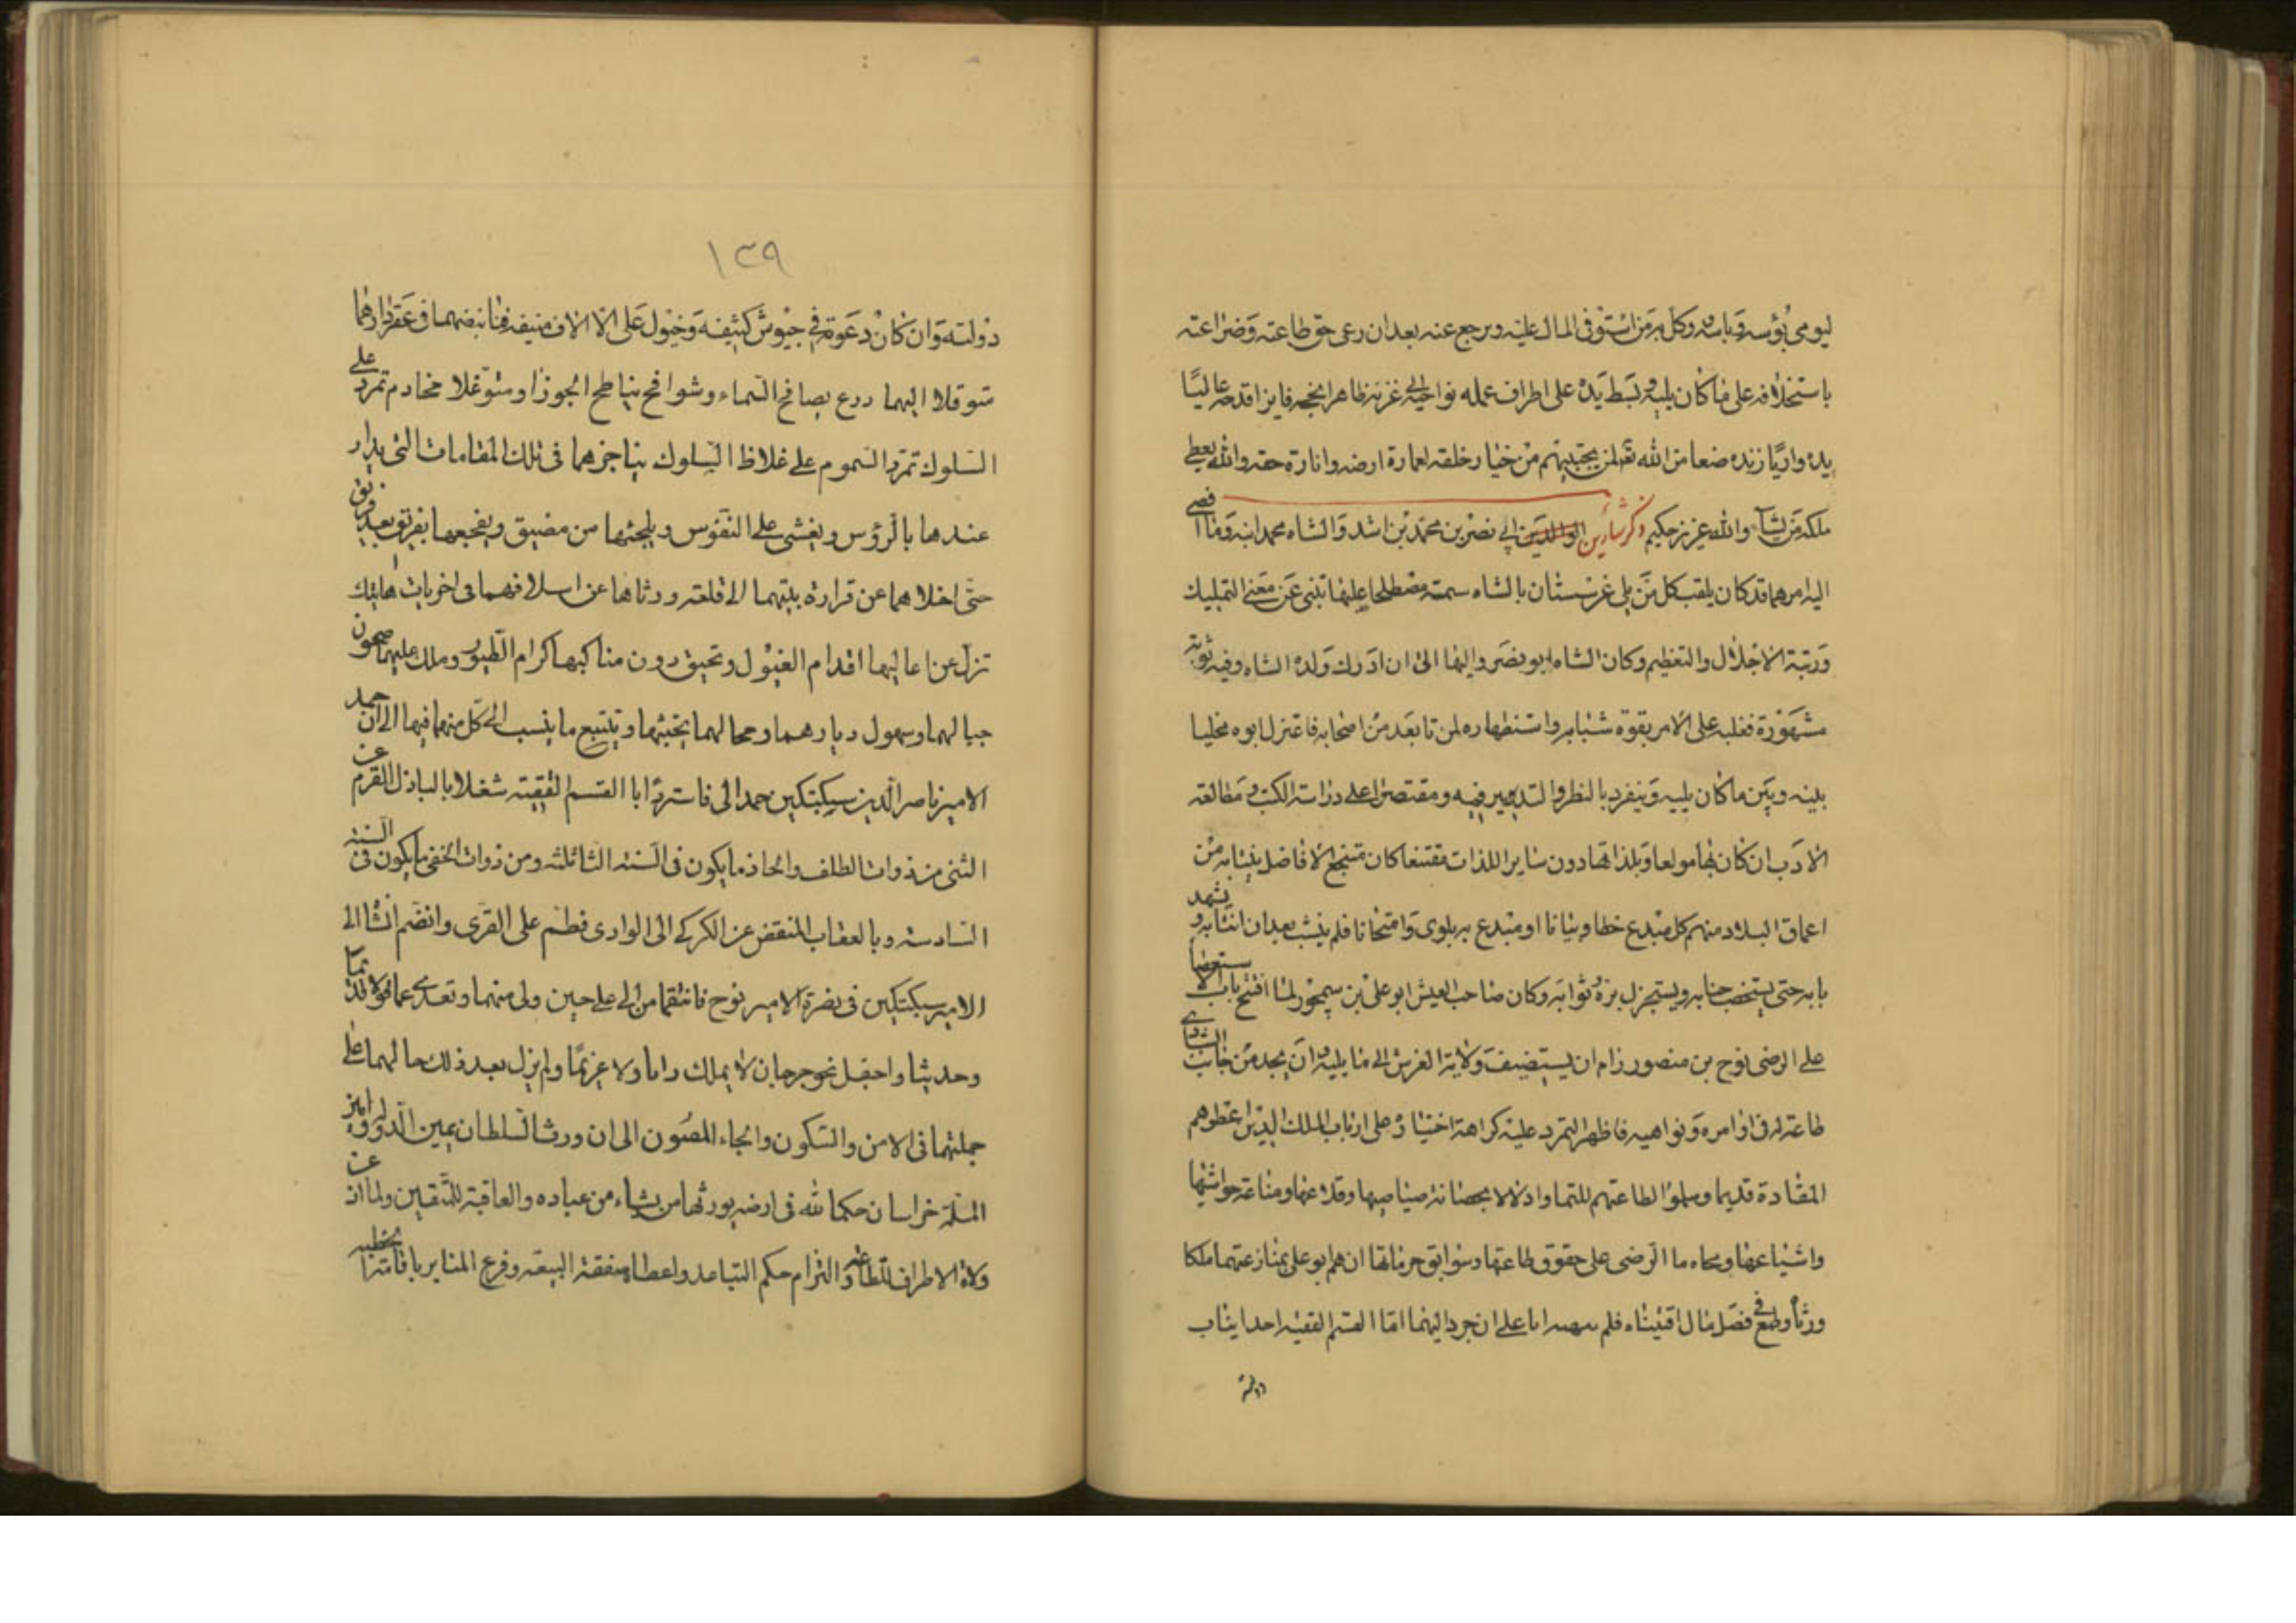 ليومي بؤسه وباسه وكل به من استوفى المال عليه ورجع عنه بعد ان رعى حق طاعته وضراعته
باستخلافه على ما كان يليه وبسط يده على اطراف عمله نواحى غزنة ظاهرا نجحه فايزا قدحه عاليًا
يده واريًا زنده صنعا من الله تع لمن يجتبيهم من خيار خلقه لعمارة ارضه وانارة حقه والله يعطى
ملكه من يشآء والله عزيز حكيم ذكر شارين ابى نصر بن محمد بن اشد والشاه محمد ابنه وما افضى
اليه امرهما قد كان يلقب كل من يلى غرشستان بالشاه سمة مصطلحا عليها تنبى عن معنى التمليك
ورتبة الاجلال والتعظيم وكان الشاه ابو نصر واليها الى ان ادرك ولده الشاه وفيه
مشهورة فغلبه على الامر بقوة شبابه واستظهاره لمن تابعه من اصحابه فاعتزل ابوه مخليا
بينه وبين ما كان يليه وينفرد بالنظر والتدبير فيه ومقتصرا على دراسة الكتب ومطالعة
الادب ان كان بها مولعا وبلذاتها دون ساير اللذات مقتنعا كان منتجع الافاضل ينتابه من
اعماق البلاد منهم كل مبدع خطا وبيانا او مبتدع به بلوى وامتحانا فلم ينشب بعد ان انتابه ويشهد
بابه حتى يستخصب جنابه ويستجزل بره ثوابه وكان صاحب الجيش ابو على بن سيمجور لما افتتح باب الاستعصا
على الرضى نوح بن منصور رام ان يستضيف ولاية الغرش الى ما يليه وان يجد من جانب الشار
طاعة له فى اوامره ونواهيه فاظهر التمرد عليه كراهة اختياره على ارباب الملك الذين اعطوهم
المقادة قديما وسلموا لطاعتهم وادلالا بحصانة صياصيها وقلاعها ومناعة حواشيها
واشياعها ومحاماة الرضى على حقوق طاعتها وسوابق حرماتها ان هم بو على بمنازعتهما ملكا
ورثاه وطمع فى فضل مال اقنيناه فلم على ان جرد اليهما ابا القسم الفقيه احد ايناب
دولته
١٣٩
دولته وان كان دعوة فى جيوش كثيفة وخيول على الالاف منيفة فناهضهما فى عقر دارهما
متوقلا اليهما درع بصافح السماء وشوافح يناطح الجوزا ومتوغلا مخادم تمرد على
السلوك تمرد السموم على غلاظ السلوك يناجزهما فى تلك المقامات التى يدار
عندها بالرؤس ويغشى على النفوس ويلجئها من مضيق ويفجعها بفريق بعد فريق
حتى اخلاهما عن قرارة بيتهما الا قلعة ورثاها عن اسلافهما فى اخريات هايتك
تزل عن اعاليها اقدام الغيول وتحيق دون مناكبها كرام الطيور وملك عليهما صحون
جبالهما وسهول ديارهما ومحالهما يجبيها ويتتبع ما ينسب الى كل منهما فيها الى ان حمد
الامير ناصر الدين سبكتكين حمد الى فاسترد ابا القسم الفقيه شغلا بالباذل القرم عن
الثنى من ذوات الظلف والحاذ ما يكون فى السنة الثالثة ومن ذوات الخف ما يكون فى السنة
السادسة وبالعقاب المنقض عن الكركى الى الوادى فطم على القرى وانضم الشا الى
الامير سبكتكين فى نصرة الامير نوح فانتقما من ابى على حين ولى منهما وتعدى عما
وحديثا واحفل نحو جرجان لا يملك راما ولا عزيمًا ولم يزل بعد ذلك حالهما على
جملتهما فى الامن والسكون والجاء المصون الى ان ورث السلطان يمين الدولة وامين
الملة خراسان حكما لله فى ارضه يورثها من يشاء من عباده والعاقبة للمتقين ولما اذعن
ولاة الاطراف للطاعة والتزام حكم التباعد واعطاء صفقة البيعة وفرع المنابر باقامة الخطبة